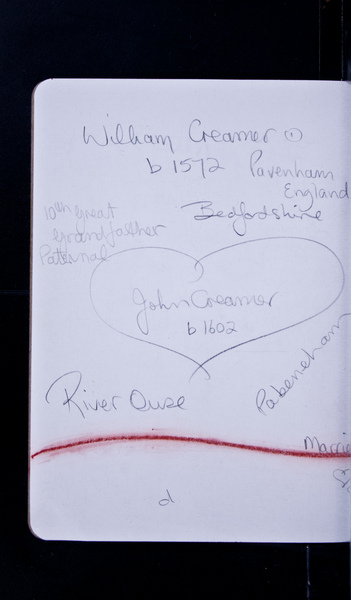 William Creamer ①
b 1572 Pavenham
England
Bedfordshire
10th great
Grandfather
Paternal
John Creamer
b 1602
River Ouse
Pabeneham
Marrie
d